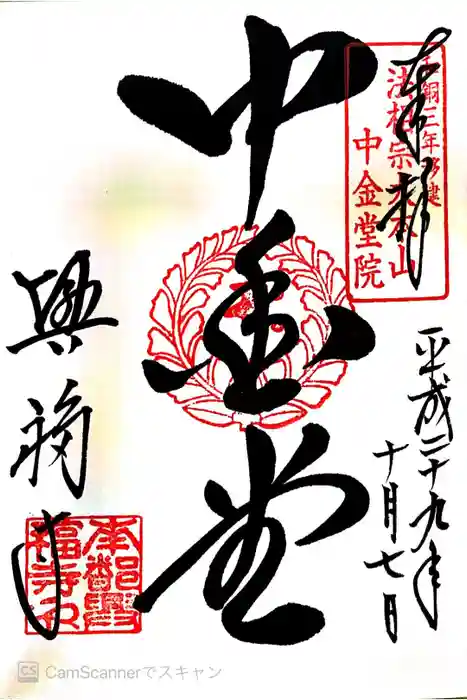 奉拝
和銅三年創建
法相宗大本山
中金堂院
平成二十九年
十月七日
中金堂
興福寺
CamScannerでスキャン